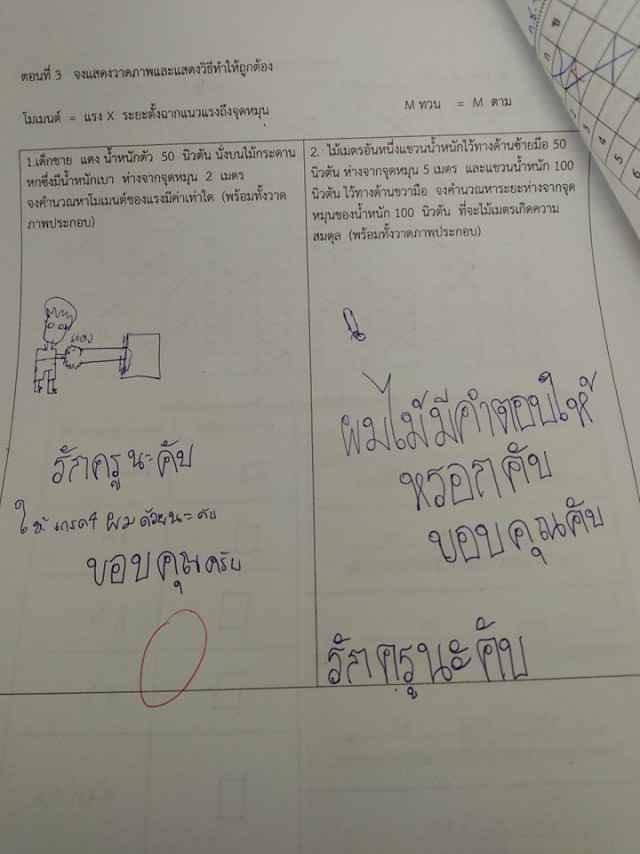 ตอนที่ 3 จงแสดงวาดภาพและแสดงวิธีทำให้ถูกต้อง
โมเมนต์ = แรง X ระยะตั้งฉากแนวแรงถึงจุดหมุน
M ทวน = M ตาม
1.เด็กชาย แดง น้ำหนักตัว 50 นิวตัน นั่งบนไม้กระดาน
หกซึ่งมีน้ำหนักเบา ห่างจากจุดหมุน 2 เมตร
จงคำนวณหาโมเมนต์ของแรงมีค่าเท่าใด (พร้อมทั้งวาด
ภาพประกอบ)
แดง
รักครูนะคับ
ให้เกรด4 ผมด้วยนะคับ
ขอบคุณครับ
2. ไม้เมตรอันหนึ่งแขวนน้ำหนักไว้ทางด้านซ้ายมือ 50
นิวตัน ห่างจากจุดหมุน 5 เมตร และแขวนน้ำหนัก 100
นิวตัน ไว้ทางด้านขวามือ จงคำนวณหาระยะห่างจากจุด
หมุนของน้ำหนัก 100 นิวตัน ที่จะไม้เมตรเกิดความ
สมดุล (พร้อมทั้งวาดภาพประกอบ)
ผมไม้มีคำตอบให้
หรอกคับ
ขอบคุณคับ
รักครูนะคับ
ก
ข
1
2
3
4
5
6